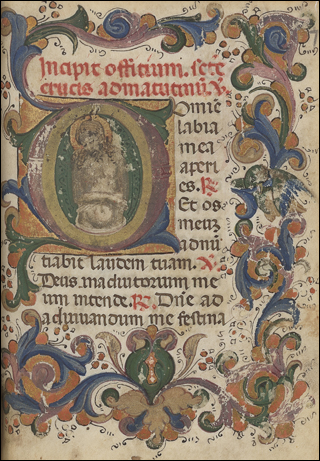 Incipit offitium. scē
crucis ad matutinū. V.
Domīe
labia
mea
aperi
es. R.
Et os
meuz
adnū
tiabit laudem tuam. V.
Deus. in adiutorium me
um intende. R. Dnē ad
adiuvandum me festina